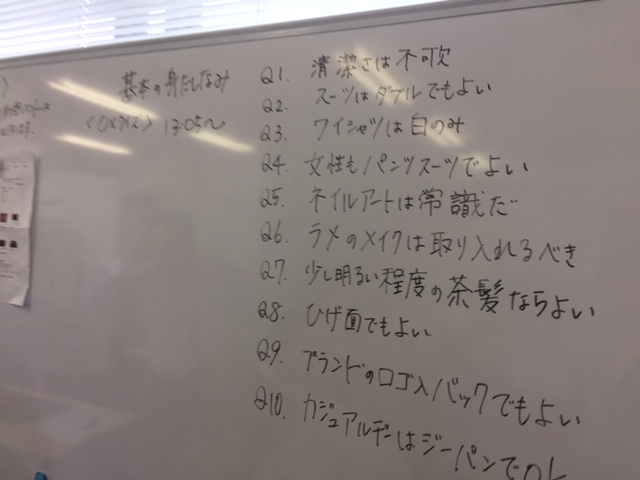 基本の身だしなみ
<○×クイズ> 13:05〜
Q1. 清潔さは不可欠
Q2. スーツはダブルでもよい
Q3. ワイシャツは白のみ
Q4. 女性もパンツスーツでよい
Q5. ネイルアートは常識だ
Q6. ラメのメイクは取り入れるべき
Q7. 少し明るい程度の茶髪ならよい
Q8. ひげ面でもよい
Q9. ブランドのロゴ入バックでもよい
Q10. カジュアルデーはジーパンでOK